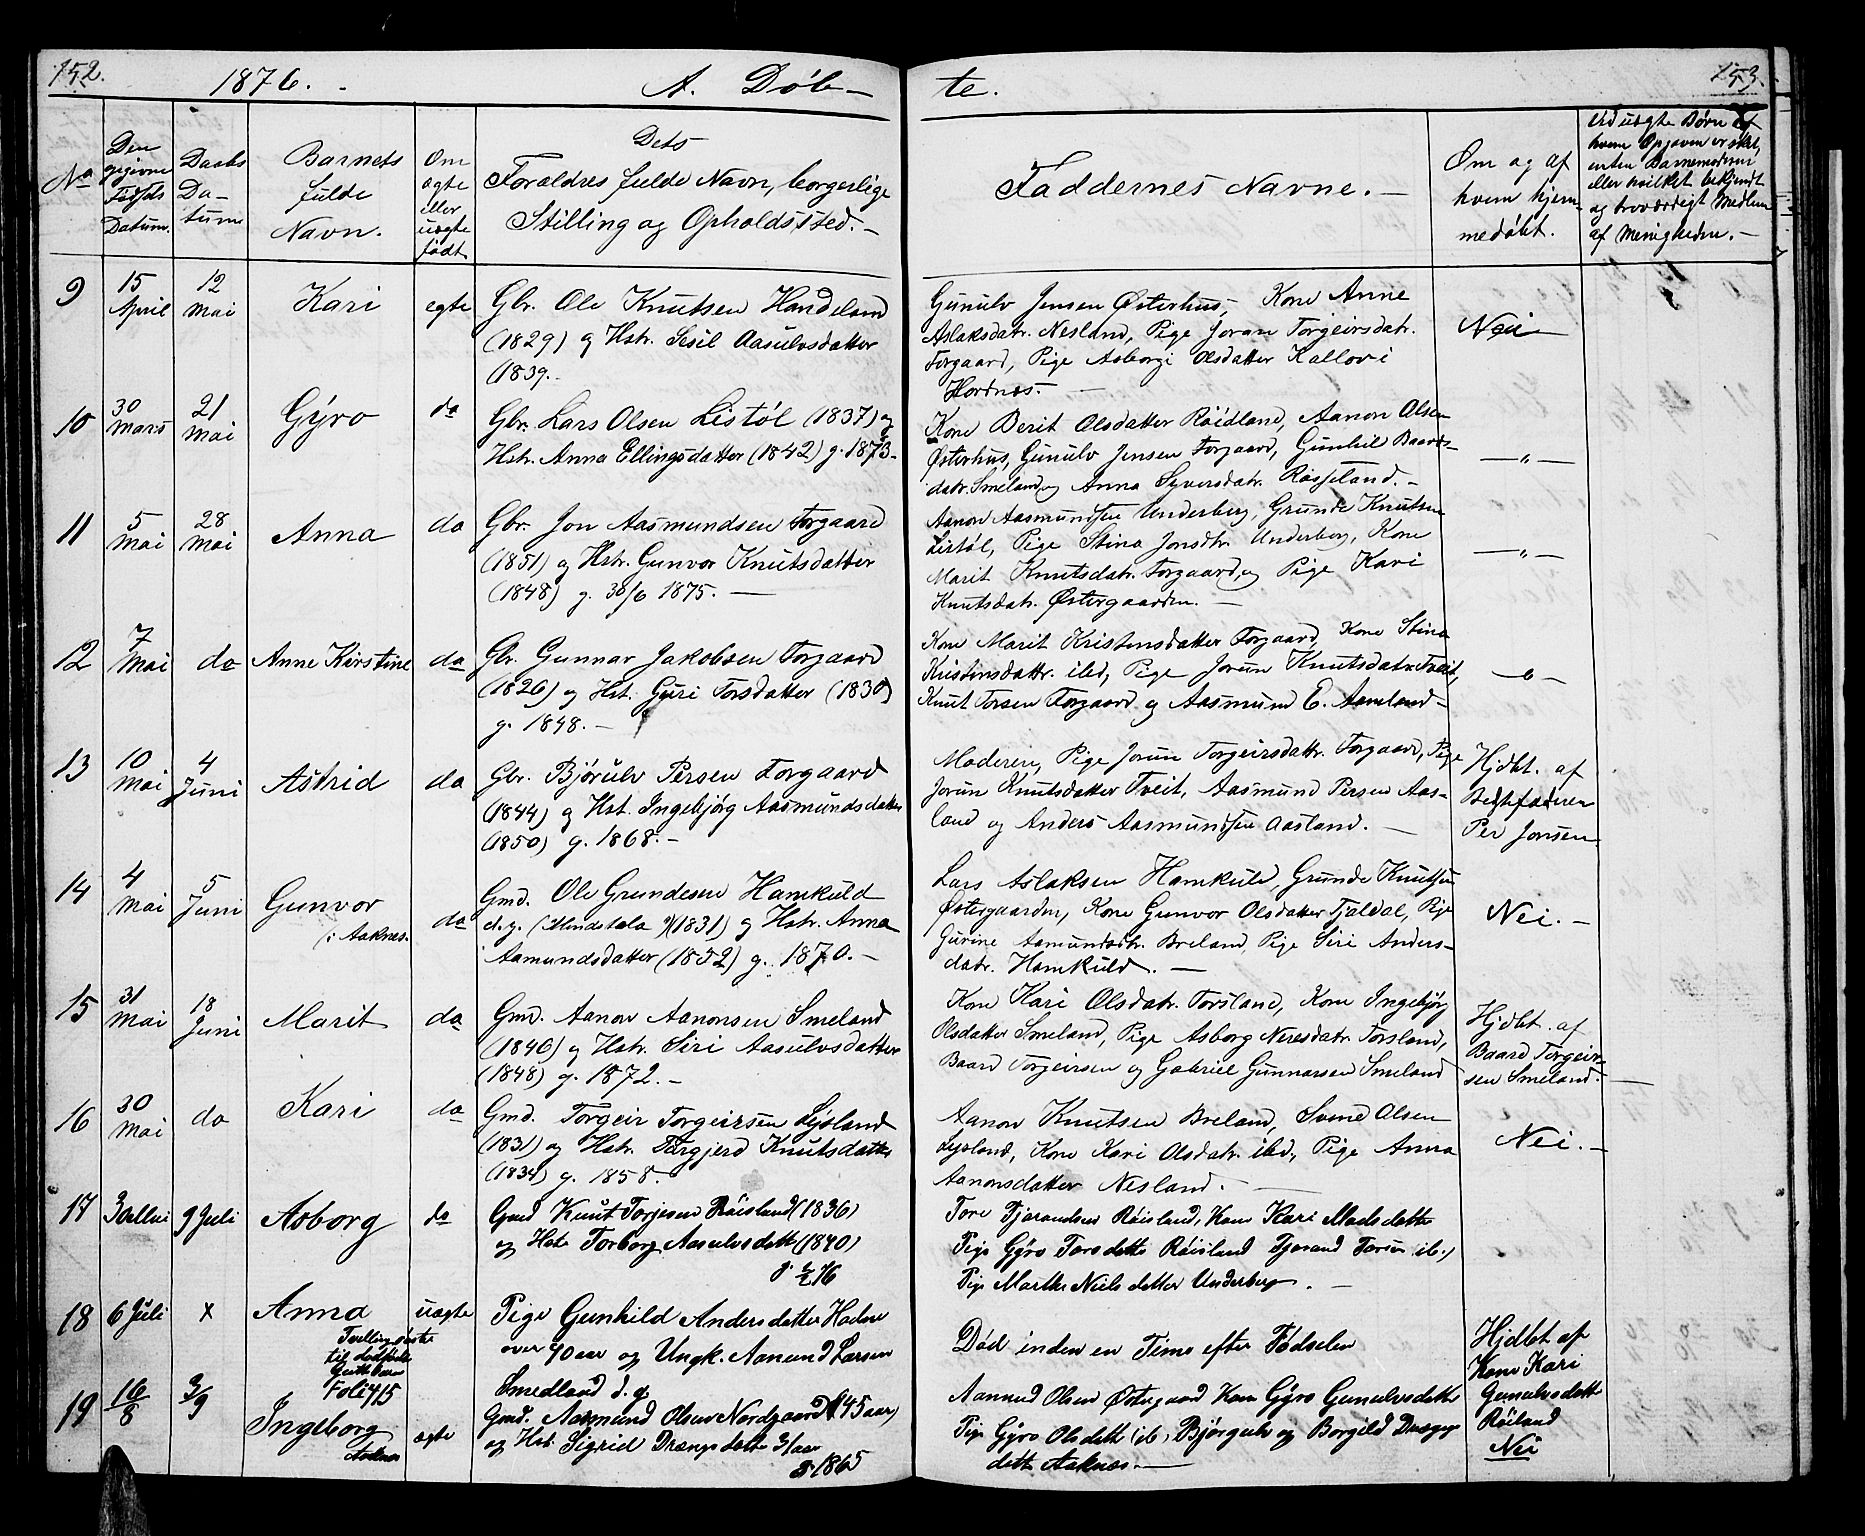 152.
1876.
A. Døb-
te.
153.
No
Den
opgivne
Fødsels
Datum.
Daabs
Da-
tum
Barnets
fulde
Navn.
Om
ægte
eller
uægte
født
Dets
Forældres fulde Navn, borgerlige
Stilling og Opholdssted.-
Faddernes Navne.-
Om og af
hvem hjem-
medøbt.
Ved uægte Børn af
hvem Opgaven er sket,
enten Barnemoderen
eller hvilket bekjendt
og troværdigt Medlem
af Menigheden.-
9
15
April
12
Mai
Kari
egte
Gbr. Ole Knutsen
(1829) og Hstr. Sesil Aasulvsdatter
(1839.-
Gunulv Jensen Østerhus, Kone Anne
Aslaksdatr. Nesland, Pige Joran Torgeirsdatr.
Forgaard, Pige Asborgi Olsdatter Kallovi
Hordnæs.-
Nei
10
30
Mars
21
Mai
Gyro
do
Gbr. Lars Olsen Listøl (1837) og
Hstr. Anna Ellingsdatter (1842) g. 1873-
Kone Berit Olsdatter Røidland, Aanon Olsen
Østerhus, Gunulv Jensen Forgaard, Gunhil Baards-
datr. Smeland og Anna Syversdatr. Røsseland.-
-"-
11
5
Mai
28
Mai
Anna
do
Gbr. Jon Aasmundsen Forgaard
(1851) og Hstr. Gunvor Knutsdatter
(1848) g. 30/6 1875.-
Aanon Aasmundsen Underberg, Grunde Knutsen
Listøl, Pige Stina Jonsdtr. Underberg, Kone
Marit Knutsdatr. Forgaard, og Pige Kari
Knutsdatr. Østergaarden.-
-"-
12
7
Mai
do
Anne Kirstine
do
Gbr. Gunnar Jakobsen Forgaard
(1826) og Hst. Guri Torsdatter (1830)
g. 1848.-
Kone Marit Kristensdatter Forgaard, Kone Stina
Kristinsdattr. ibd, Pige Jorun Knutsdatr. Tveit,
Knut Torsen Forgaard og Aasmund E. Aamland-
-"-
13
10
Mai
4
Juni
Astrid
do
Gbr. Bjørulv Persen Forgaard
(1844) og Hst. Ingebjørg Aasmundsdatter
(1850) g. 1868.-
Moderen, Pige Jorun Torgeirsdattr. Forgaard, Pige
Jorun Knutsdatter Tveit, Aasmund Persen Aas-
land og Anders Aasmundsen Aasland.-
Hjdbt. af
Bedstefaderen
Per Jonsen
14
4
Mai
5
Juni
Gunvor
i Aaknes.
do
Gmd. Ole Grundesen Hamkuld
d.y. (1831) og Hstr. Anna
Aamundsdatter (1852) g. 1870.-
Lars Aslaksen Hamkuld, Grunde Knutsen
Østergaarden, Kone Gunvor Olsdatter Tjaldal, Pige
Gurine Aamundsdtr. Breland, Pige Siri Anders-
datr. Hamkuld.-
Nei.-
15
31
Mai
18
Juni
Marit
do
Gmd. Aanon Aanonsen Smeland
(1846) og Hstr. Siri Aasulvsdatter
(1848) g. 1872.-
Kone Kari Olsdatr. Torsland, Kone Ingebjørg
Olsdatter Smeland, Pige Asborg Neresdatr. Torsland,
Baard Torgeirsen og Gabriel Gunnarsen Smeland
Hjdbt. af
Baard Torgeir-
sen Smeland.-
16
30
Mai
do
Kari
do
Gmd. Torgeir Torgeirsen Lysland
(1831) og Hstr. Targjerd Knutsdatter
(1834) g. 1858.-
Aanon Knutsen Breland, Svend Olsen
Lysland, Kone Kari Olsdatr. ibd., Pige Anna
Aanonsdatter Nesland.-
Nei.-
17
9 Juli
Asborg
do
Gmd Knut Torjesen Røisland (1836)
og Hstr Torborg Aasulvsdatter (1840)
Tore Tjorandsen Røisland, Kone Kari Madsdatter
Pige Gyro Torsdatter Røisland Tjorand Torsen ib.,
Pige Marthe Nielsdatter Underberg.-
18
6 Juli
x
Anna
Tvillingsøster
til dødfødt
Guttebarn
Foli 415
uægte
Pige Gunhild Andersdatter
over 40 aar og Ungk. Aanund Larsen
Smedland d.y.
Død inden en Time efter Fødselen
Hjdbt af
Kone Kari
Gunulvsdatter
Røiland
19
16/8
3/9
Ingeborg
Aaknes
ægte
Gmd. Aasmund Olsen Nordgaard (45 aar)
og Hst. Sigrid Drengsdatter 31 aar
g. 1865
Aanund Olsen Østegaard Kone Gyro Gunulvsdatter
Pige Gyro Olsdatter ib, Bjørgulv og Borgild Drengs-
datter Aaknes.-
Nei